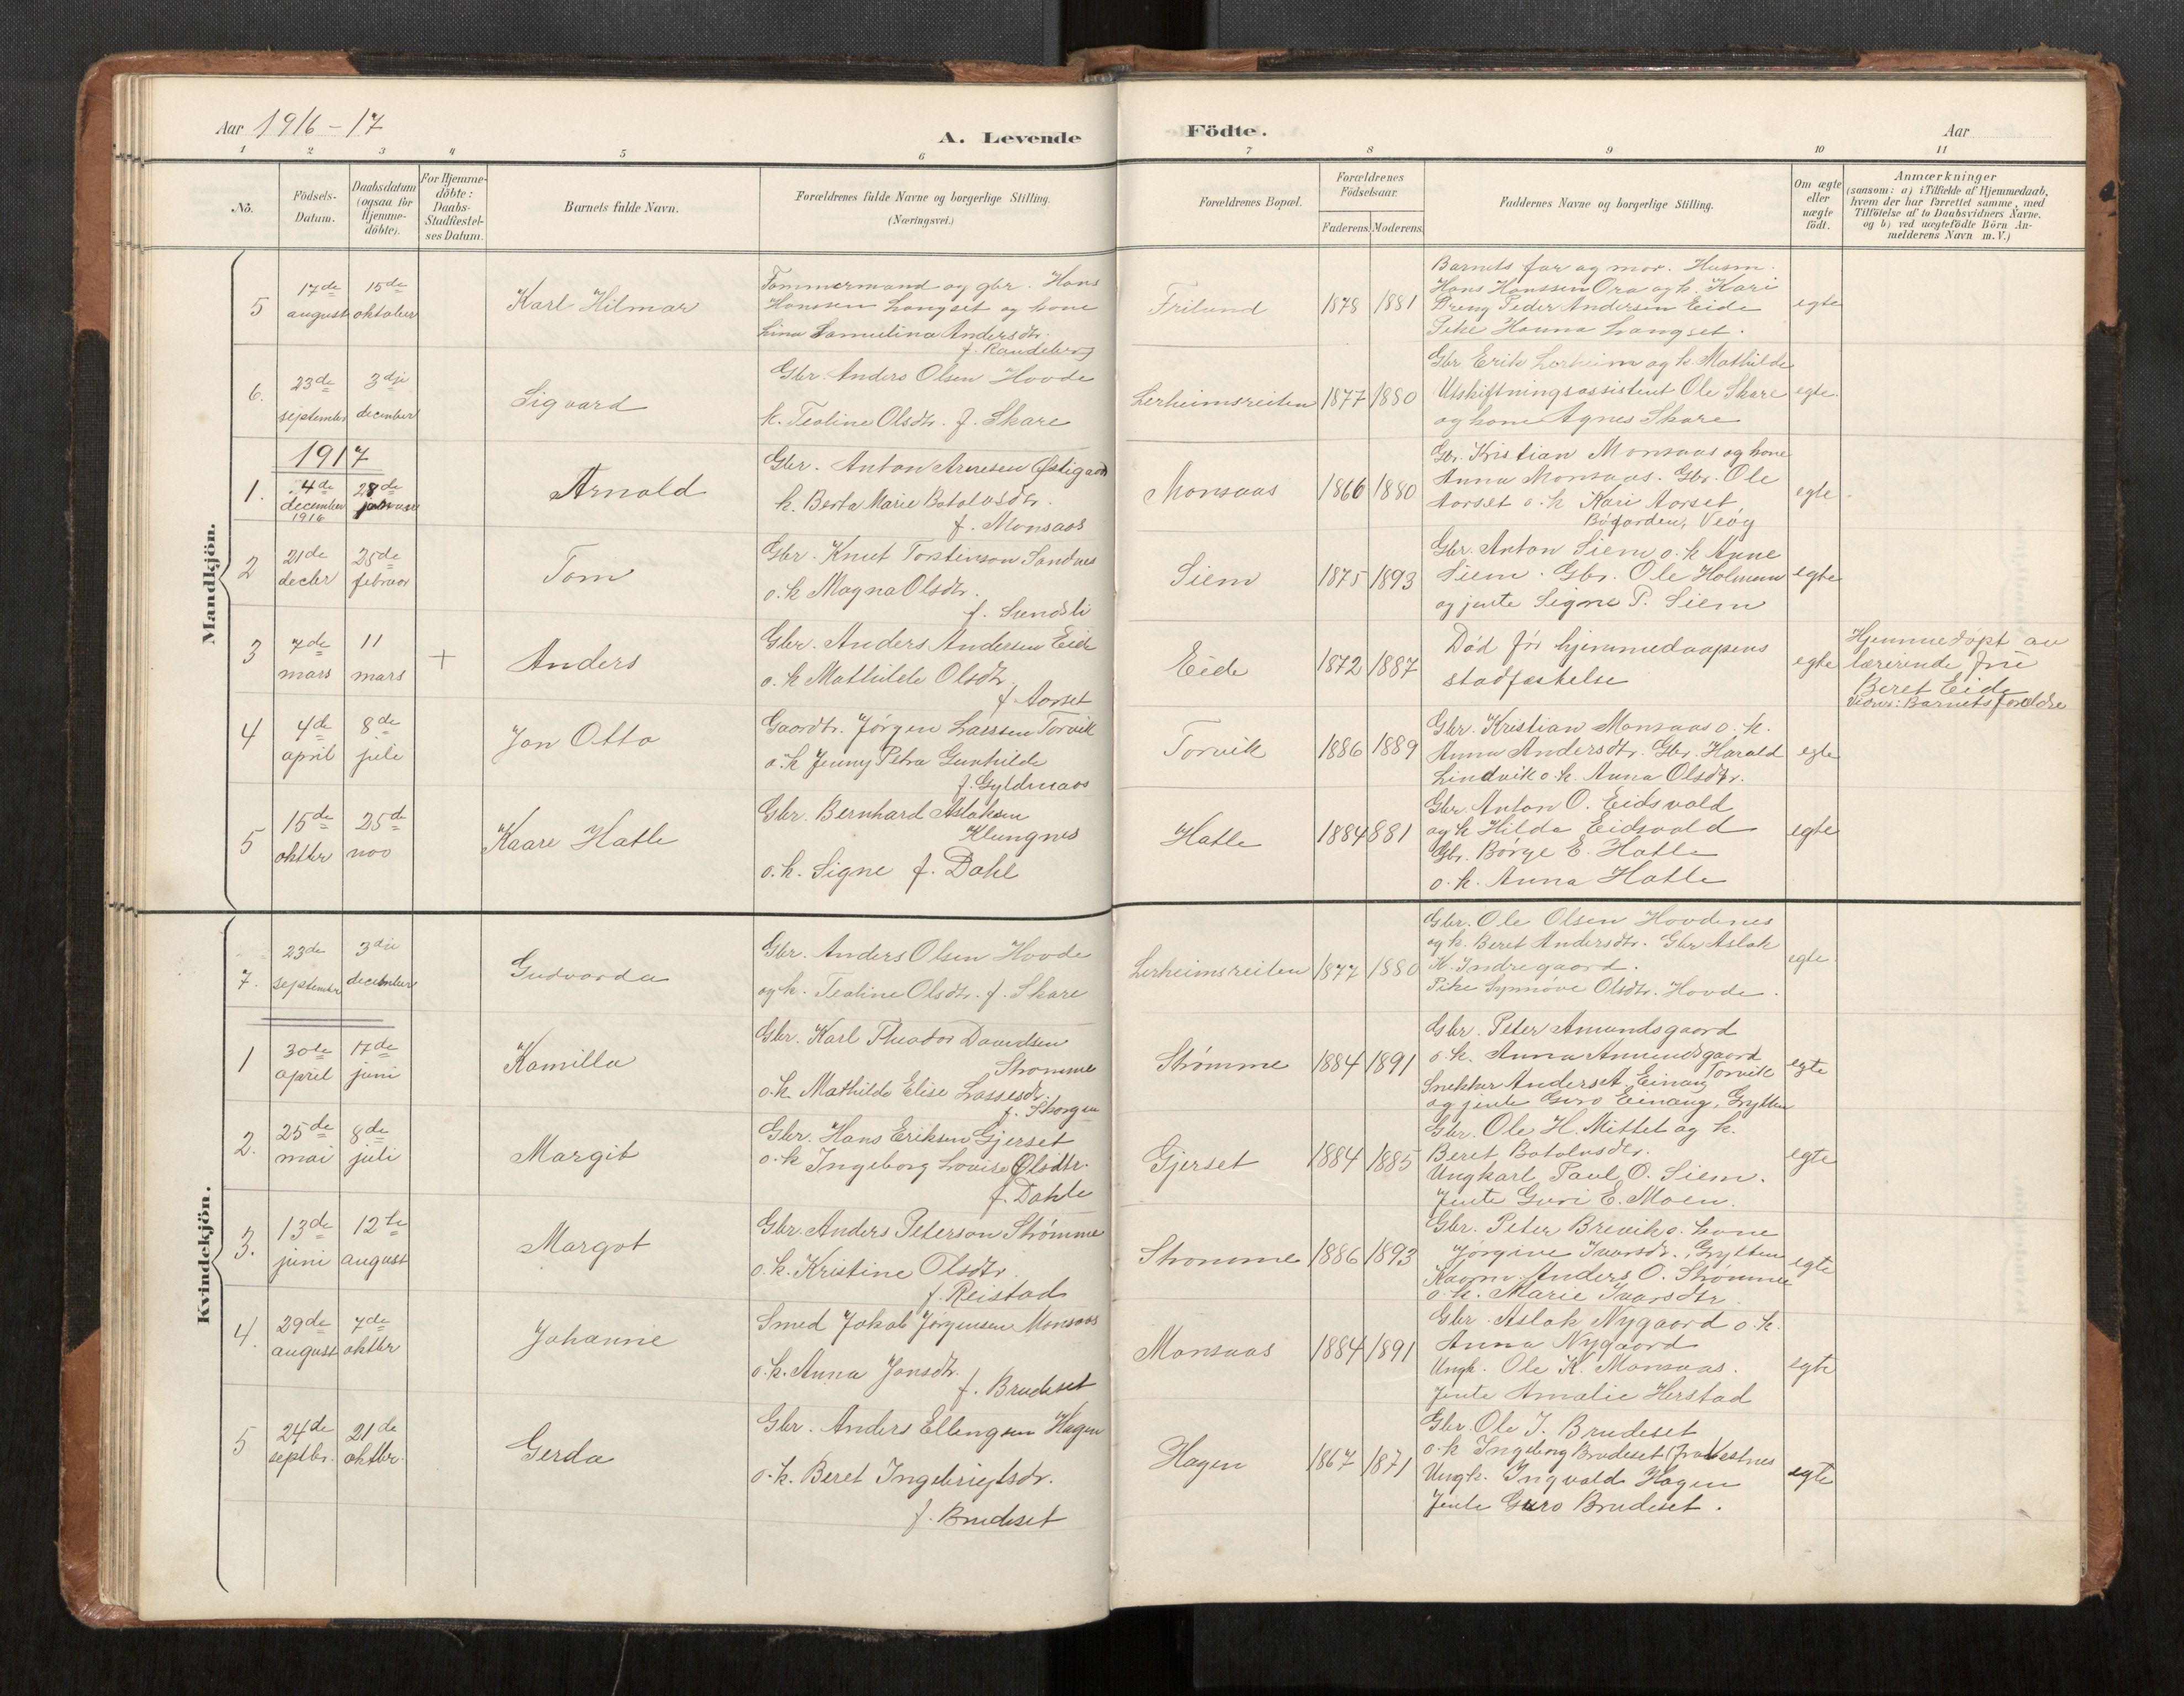 Aar 1916-17
A. Levende
Födte.
Aar
1 2 3 4 5 6 7 8 9 10 11
No.
Födsels-Datum.
Daabsdatum (ogsaa for Hjemme-döbte).
For Hjemme-döbte: Daabs-Stadfæstel-ses Datum.
Barnets fulde Navn.
Forældrenes fulde Navne og borgerlige Stilling.
(Næringsvei.)
Forældrenes Bopæl.
Forældrenes Födselsaar.
Faderens. Moderens.
Faddernes Navne og borgerlige Stilling.
Om ægte eller uægte födt.
Anmærkninger
(saasom: a) i Tilfælde af Hjemmedaab,
hvem der har forrettet samme, med
Tilföielse af to Daabsvidners Navne.
og b) ved uægtefödte Börn An-
melderens Navn m. V.)
Mandkjön.
5
17de august
15de oktober
Karl Hilmar
Tømmermand og gbr. Hans
Hanssen Langset og kone
Lina Samuelina Andersdtr.
f. Randeberg
Frilund
1878 1881
Barnets far og mor. Husm.
Hans Hanssen Ora og k. Kari
Dreng Peder Andersen Eide
Pike Hanna Langset.
egte
6.
23de september
3dje december
Sigvard
Gbr. Anders Olsen Hovde
k. Tealine Olsdtr. f. Skare
Lerheimsreiten
1877 1880
Gbr. Erik Lerheim og k. Mathilde
Utskiftningsassistent Ole Skare
og kone Agnes Skare
egte.
1917
1.
4de december 1916
28de januar
Arnold
Gbr. Anton Arnesen Østigaard
k. Berta Marie Botolvsdtr.
f. Monsaas
Monsaas
1866 1880
Gbr. Kristian Monsaas og kone
Anna Monsaas. Gbr. Ole
Aorset o. k Kari Aorset,
Bøgarden, Veøy
egte
2
21de decbr
25de februar
Tom
Gbr. Knut Torstenson Sandnes
o. k Magna Olsdtr.
f. Sundsli
Siem
1875 1893
Gbr. Anton Siem o. k Anne
Siem. Gbr. Ole Holmem
og jente Signe P. Siem
egte
3
7de mars
11 mars
+
Anders
Gbr. Anders Andersen Eide
o. k Mathilde Olsdtr.
f Aorset
Eide
1872 1887
Død før hjemmedaapens
stadfæstelse
egte
Hjemmedøpt av
lærerinde fru
Beret Eide
Vidner: Barnets foreldre
4
4de april
8de juli
Jon Otto
Gaardbr. Jørgen Lassen Torvik
o. k Jenny Petra Gunhilde
f. Gyldmaas
Torvik
1886 1889
Gbr. Kristian Monsaas o. k.
Anna Andersdtr. Gbr. Harald
Lindvik o. k. Anna Olsdtr.
egte
5
15de oktbr
25de nov
Kaare Hatle
Gbr. Bernhard Aslaksen
Klungnes
o. k. Signe f. Dahl
Hatle
1884 881
Gbr. Anton O. Eidsvold
og k Hilda Eidsvold
Gbr. Børge E. Hatle
o. k. Anna Hatle
egte
Kvindekjön.
7.
23de september
3die december
Gudvarda
Gbr. Anders Olsen Hovde
og k. Tealine Olsdtr. f. Skare
Lerheimsreiten
1877 1880
Gbr. Ole Olsen Hovdenes
og k. Beret Andersdtr. Gbr Aslak
K. Indregaard.
Pike Synnøve Olsdtr. Hovde.
egte.
1
30te april
17de juni
Kamilla
Gbr. Karl Theodor Davidsen
Strømme
o. k. Mathilde Elise Lassesdtr.
f. Skorgen
Strømme
1884 1891
Gbr. Peter Amundsgaard
o. k. Anna Amundsgaard
Torvik
Snekker Anderset Einang
og jente Guro Einang, Grytten
egte
2.
25de mai
8de juli
Margit
Gbr. Hans Eriksen Gjerset
o. k Ingeborg Lovise Olsdtr.
f. Dahle
Gjerset
1884 1885
Gbr. Ole H. Mittet og k.
Beret Botolvsdtr.
Ungkarl Paul O. Siem.
Jente Guri E. Moen.
egte
3.
13de juni
12te august
Margot
Gbr. Anders Peterson Strømme
o. k. Kristine Olsdtr
f. Reistad
Strømme
1886 1893
Gbr. Peter Brevik o. kone
Jørgine Ivarsdr., Grytten
Kaarm. Anders O. Strømme
o. k. Marie Ivarsdtr.
egte
4.
29de august
7de oktbr
Johanne
Smed Jakob Jørgensen Monsaas
o. k. Anna Jonsdtr.
f. Brudeset
Monsaas
1884 1891
Gbr. Aslak Nygaard o. k.
Anna Nygaard
Ungk. Ole K. Monsaas.
Jente Amalie Herstad
egte
5
24de septbr.
21de oktbr.
Gerda
Gbr. Anders Ellingsen Hagen
o. k. Beret Ingebrigtsdr.
f. Brudeset
Hagen
1867 1871
Gbr. Ole J. Brudeset
o. k Ingeborg Brudeset (fra Vestnes
Ungk. Ingvald Hagen
Jente Guro Brudeset.
egte